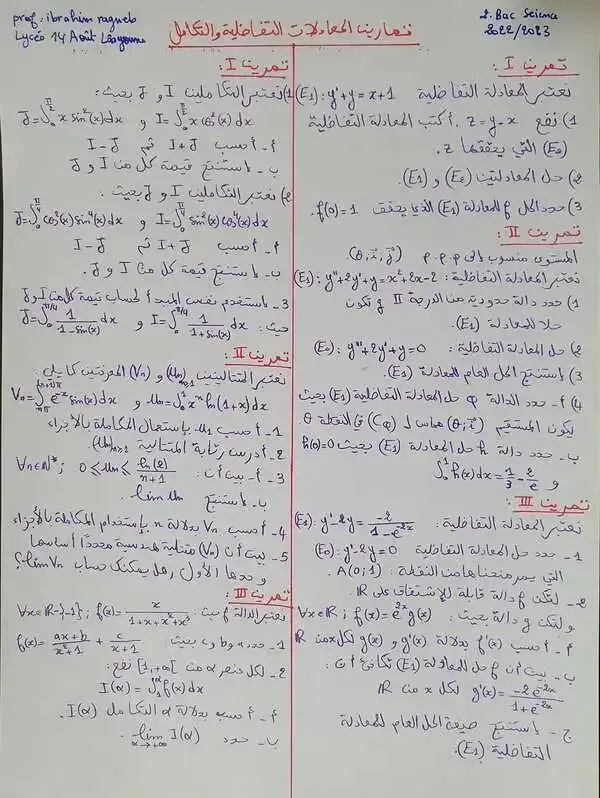 prof. ibrahim ragueb
Lycée 14 Août Lâayoune
تمارين المعادلات التفاضلية والتكامل
2. Bac Science
2022/2023
تمرين I :
نعتبر المعادلة التفاضلية (E1): y'+y = x+1
1) نضع z = y-x. أكتب المعادلة التفاضلية
(E0) التي يحققها z.
2) حل المعادلتين (E0) و (E1).
3) حدد الحل f للمعادلة (E1) الذي يحقق f(0) = 1.
تمرين II :
المستوى منسوب إلى م.م.م (O; i; j).
نعتبر المعادلة التفاضلية : (E1): y"+2y'+y = x²+2x-2
1) حدد دالة حدودية من الدرجة II و تكون
حلا للمعادلة (E1).
2) حل المعادلة التفاضلية : (E0): y"+2y'+y = 0
3) إستنتج الحل العام للمعادلة (E1).
4) أ- حدد الدالة φ حل المعادلة التفاضلية (E1) بحيث
يكون المستقيم (O; i) مماس لـ (Cφ) في النقطة O
ب- حدد دالة h حل المعادلة (E1) بحيث h(0)=0
و ∫₀¹ h(x)dx = 1/3 - 2/e
تمرين III :
نعتبر المعادلة التفاضلية : (E1): y'-2y = -2/(1-e^-2x)
1- حدد حل المعادلة التفاضلية (E0): y'-2y = 0
التي يمر منحناها من النقطة : A(0; 1).
2- لتكن f دالة قابلة للإشتقاق على IR
و لتكن g دالة بحيث : ∀x∈IR ; f(x) = e^2x g(x)
أ- أحسب f'(x) بدلالة g'(x) و g(x) لكل x من IR
ب- بين أن f حل للمعادلة (E1) تكافئ أن :
g'(x) = -2e^-2x/(1+e^-2x) لكل x من IR
ج- إستنتج صيغة الحل العام للمعادلة
التفاضلية (E1).
تمرين I :
1) نعتبر التكاملين I و J بحيث :
J = ∫₀^(π/2) x sin²(x) dx و I = ∫₀^(π/2) x cos²(x) dx
أ- أحسب I+J ثم I-J
ب- إستنتج قيمة كل من I و J
2) نعتبر التكاملين I و J بحيث.
J = ∫₀^(π/4) cos²(x) sin⁴(x) dx و I = ∫₀^(π/4) sin²(x) cos⁴(x) dx
أ- أحسب I+J ثم I-J
ب- إستنتج قيمة كل من I و J.
3- إستخدم نفس المبدأ لحساب قيمة كل من I و J
حيث : I = ∫₀^(π/4) 1/(1+sin(x)) dx و J = ∫₀^(π/4) 1/(1-sin(x)) dx
تمرين II :
نعتبر المتتاليتين (Un)n≥1 و (Vn) المعرفتين كما يلي :
Vn = ∫nπ^(n+1)π e^-x sin(x) dx و Un = ∫₀¹ xⁿ ln(1+x) dx
1- أ- أحسب U1 بإستعمال المكاملة بالأجزاء
2- أدرس رتابة المتتالية (Un)n≥1.
3- أ- بين أن : ∀n∈IN* ; 0 ≤ Un ≤ ln(2)/(n+1)
ب- إستنتج lim Un.
4- أحسب Vn بدلالة n بإستخدام المكاملة بالأجزاء
5- بين أن (Vn) متتالية هندسية محددا أساسها
و حدها الأول، هل يمكنك حساب lim Vn؟
تمرين III :
نعتبر الدالة f حيث : ∀x∈IR-{-1} ; f(x) = x/(1+x+x²+x³)
1- حدد a و b و c بحيث f(x) = (ax+b)/(x²+1) + c/(x+1)
2- لكل عنصر α من [1,+∞[ نضع :
I(α) = ∫₁^α f(x) dx
أ- أحسب بدلالة α التكامل I(α).
ب- حدد lim α→+∞ I(α).